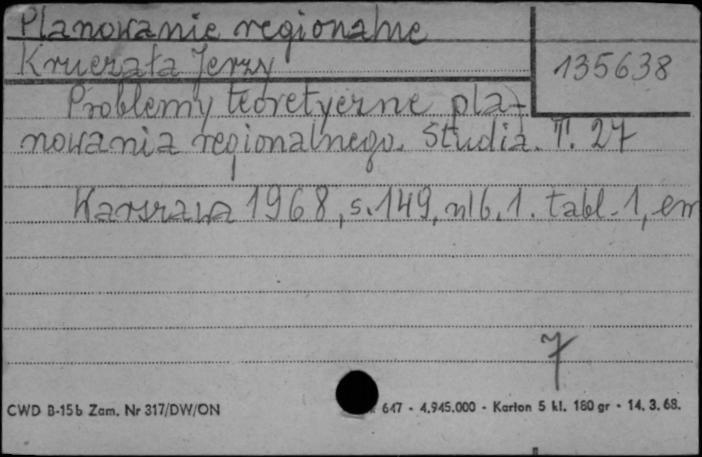 Planowanie regionalne
Kruczała Jerzy
135638
Problemy teoretyczne pla-
nowania regionalnego. Studia. T. 27
Warszawa 1968, s. 149, nlb. 1. tabl. 1, em
7
CWD B-15b Zam. Nr 317/DW/ON
647 - 4.945.000 - Karton 5 kl. 180 gr - 14. 3. 68.